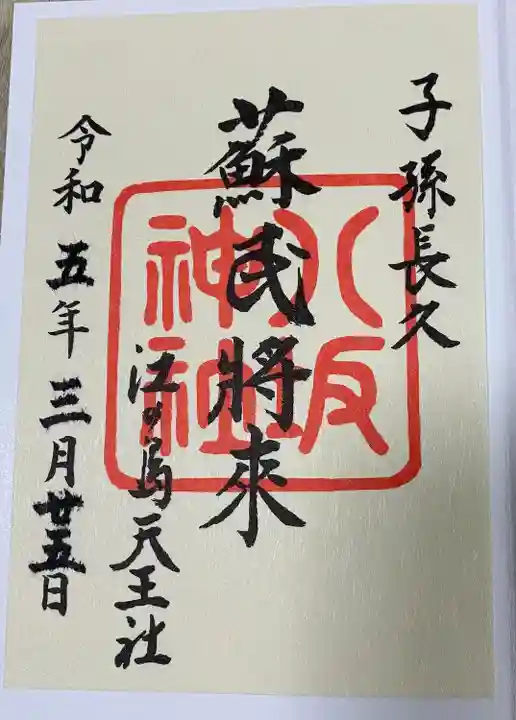 子孫長久
蘇民將來
八坂神社
江の島天王社
令和五年三月廿五日